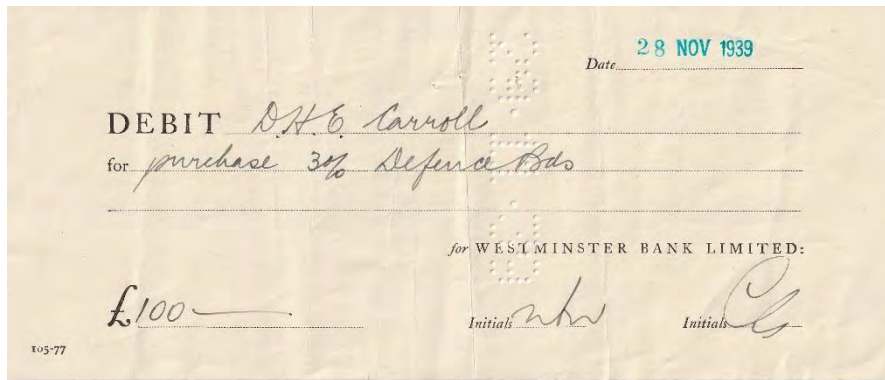 Date 28 NOV 1939
DEBIT D.H.E. Carroll
for purchase 3% Defence Bds
for WESTMINSTER BANK LIMITED:
£100—
Initials Initials
105-77